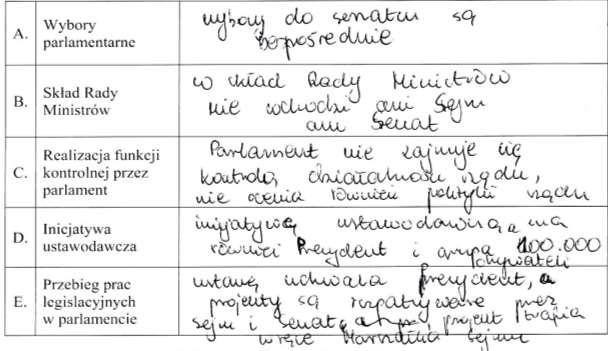 A. Wybory parlamentarne
wybory do senatu są
bezpośrednie
B. Skład Rady Ministrów
w skład Rady Ministrów
nie wchodzi ani Sejm
ani Senat
C. Realizacja funkcji kontrolnej przez parlament
Parlament nie zajmuje się
kontrolą działalności rządu,
nie ocenia również polityki rządu
D. Inicjatywa ustawodawcza
inicjatywę ustawodawczą ma
również Prezydent i grupa 100.000
obywateli
E. Przebieg prac legislacyjnych w parlamencie
ustawę uchwala prezydent, a
projekty są rozpatrywane przez
Sejm i Senat, projekt trafia
w ręce Marszałka Sejmu